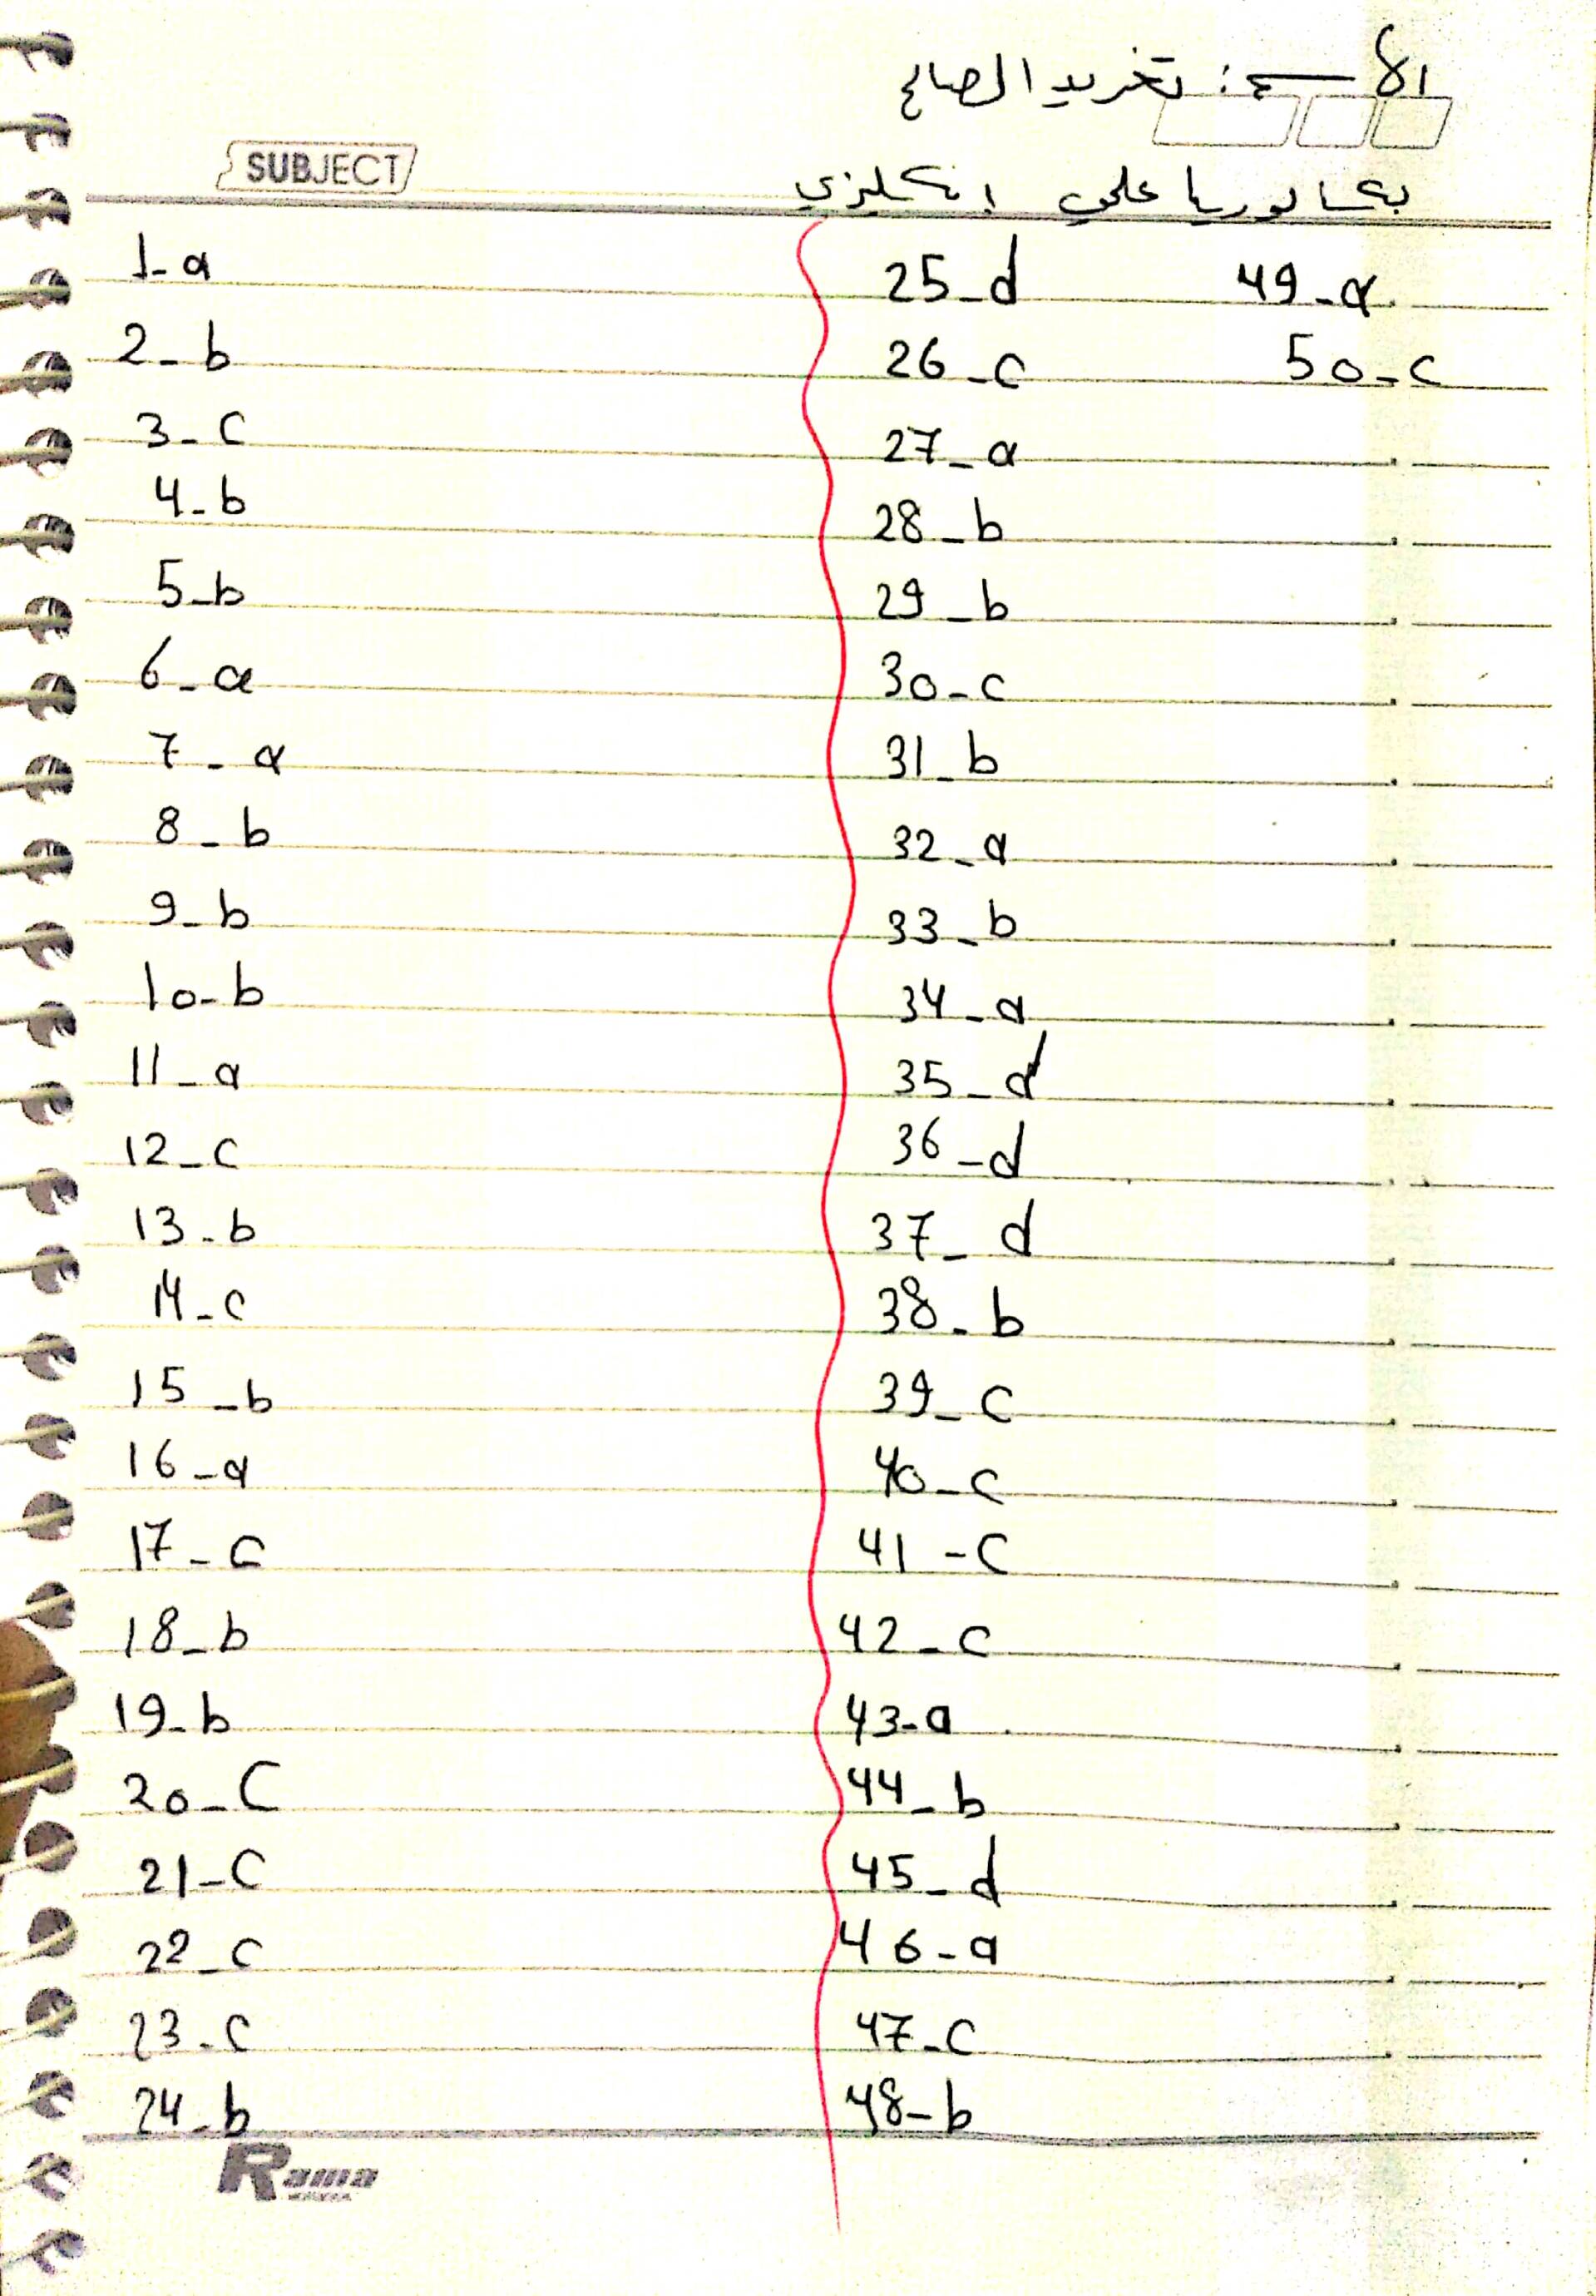 الاسم: تغريد الصالح
SUBJECT
بكالوريا علمي إنكليزي
1-a
2-b
3-c
4-b
5-b
6-a
7-a
8-b
9-b
10-b
11-a
12-c
13-b
14-c
15-b
16-a
17-c
18-b
19-b
20-c
21-c
22-c
23-c
24-b
25-d
26-c
27-a
28-b
29-b
30-c
31-b
32-a
33-b
34-a
35-d
36-d
37-d
38-b
39-c
40-c
41-c
42-c
43-a
44-b
45-d
46-a
47-c
48-b
49-a
50-c
Rama